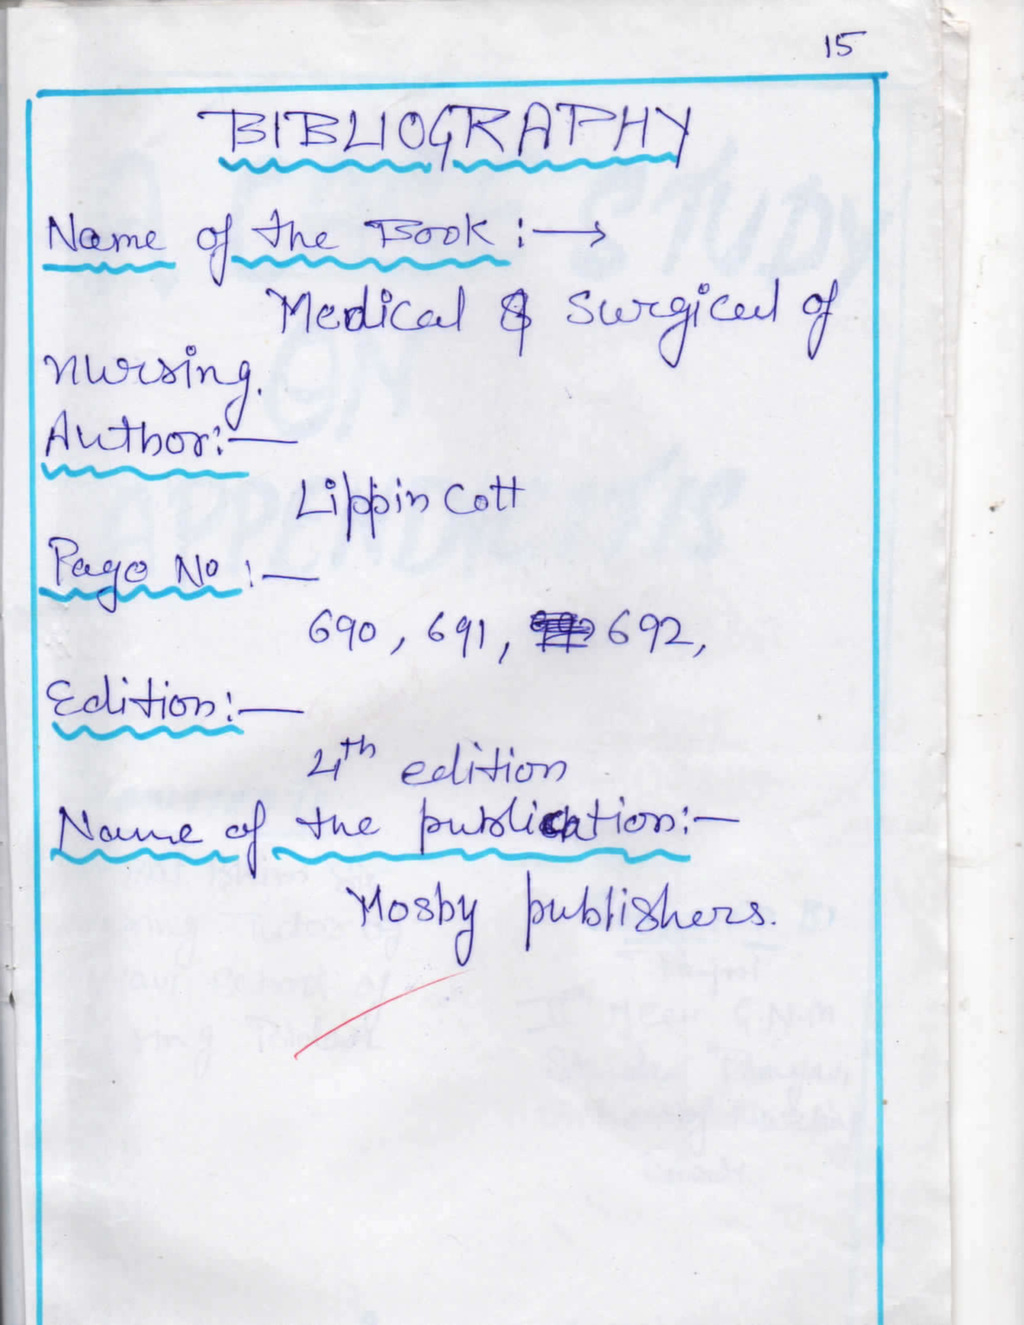 15
BIBLIOGRAPHY
Name of the Book :→
Medical & Surgical of
nursing.
Author:—
Lippin Cott
Page No :—
690, 691, 692,
Edition:—
4th edition
Name of the publication:—
Mosby publishers.
A STUDY
ON
APPENDICITIS